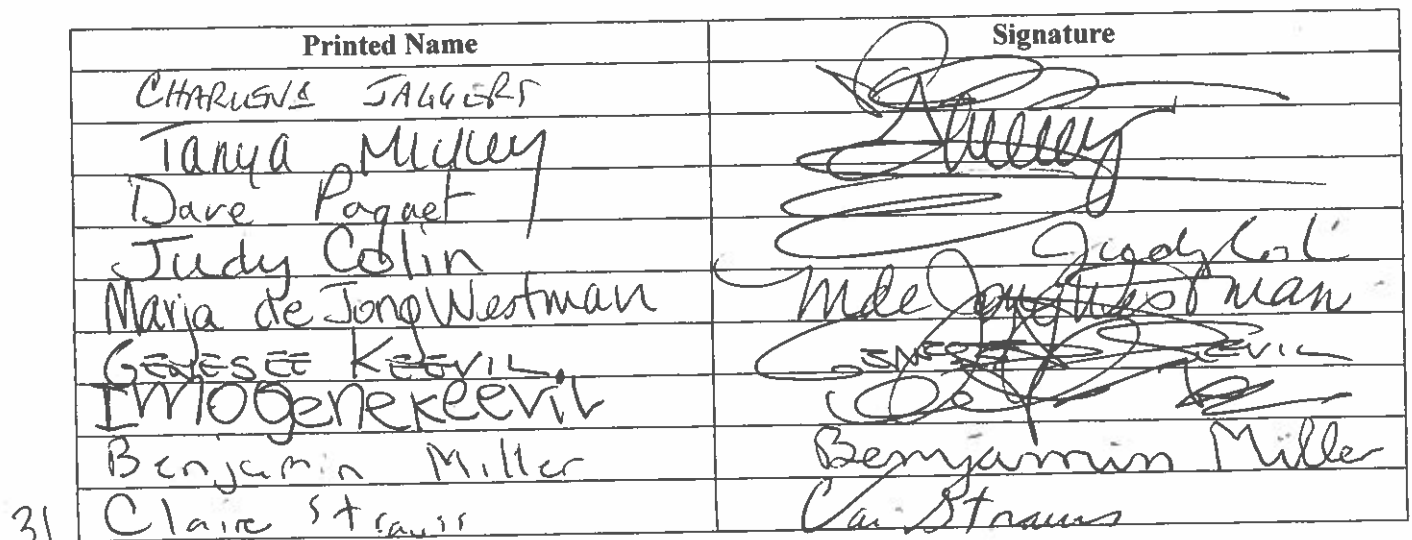 Printed Name Signature
CHARLENE JAGGERT
Tanya
Dave Paquet
Judy Colin Judy Col
Marja de Jong Westman Mde Jong Westman
GENESEE KEEVIL. GENESEE KEEVIL
Imogene keevil
Benjamin Miller Benyamin Miller
31 Claire Strauss Strauss